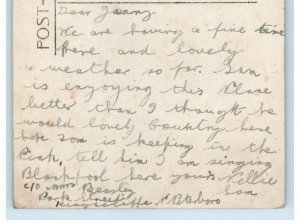 POST-
Dear Jonny
We are having a fine time
here and lovely
weather so far. Sam
is enjoying this Place
better than I thought he
would lovely Country here
hope Tom is keeping in the
Pink, tell him I am singing
Blackpool here yours Nellie
Sam
c/o Mrs Beasley
Park Street
Kingscliffe N. Pterboro